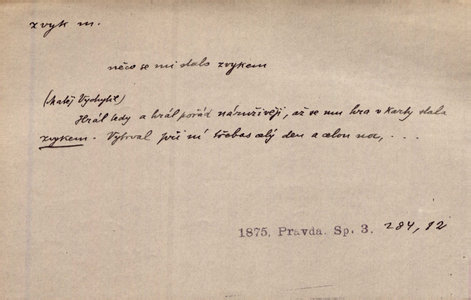 zvyk m.
něco se mi stalo zvykem
(Matěj Výchyle)
Hrál tedy a hrál pořád náruživěji, až se mu hra v karty stala
zvykem. Vytrval při ní třebas celý den a celou noc, . . .
1875, Pravda. Sp. 3. 284, 12